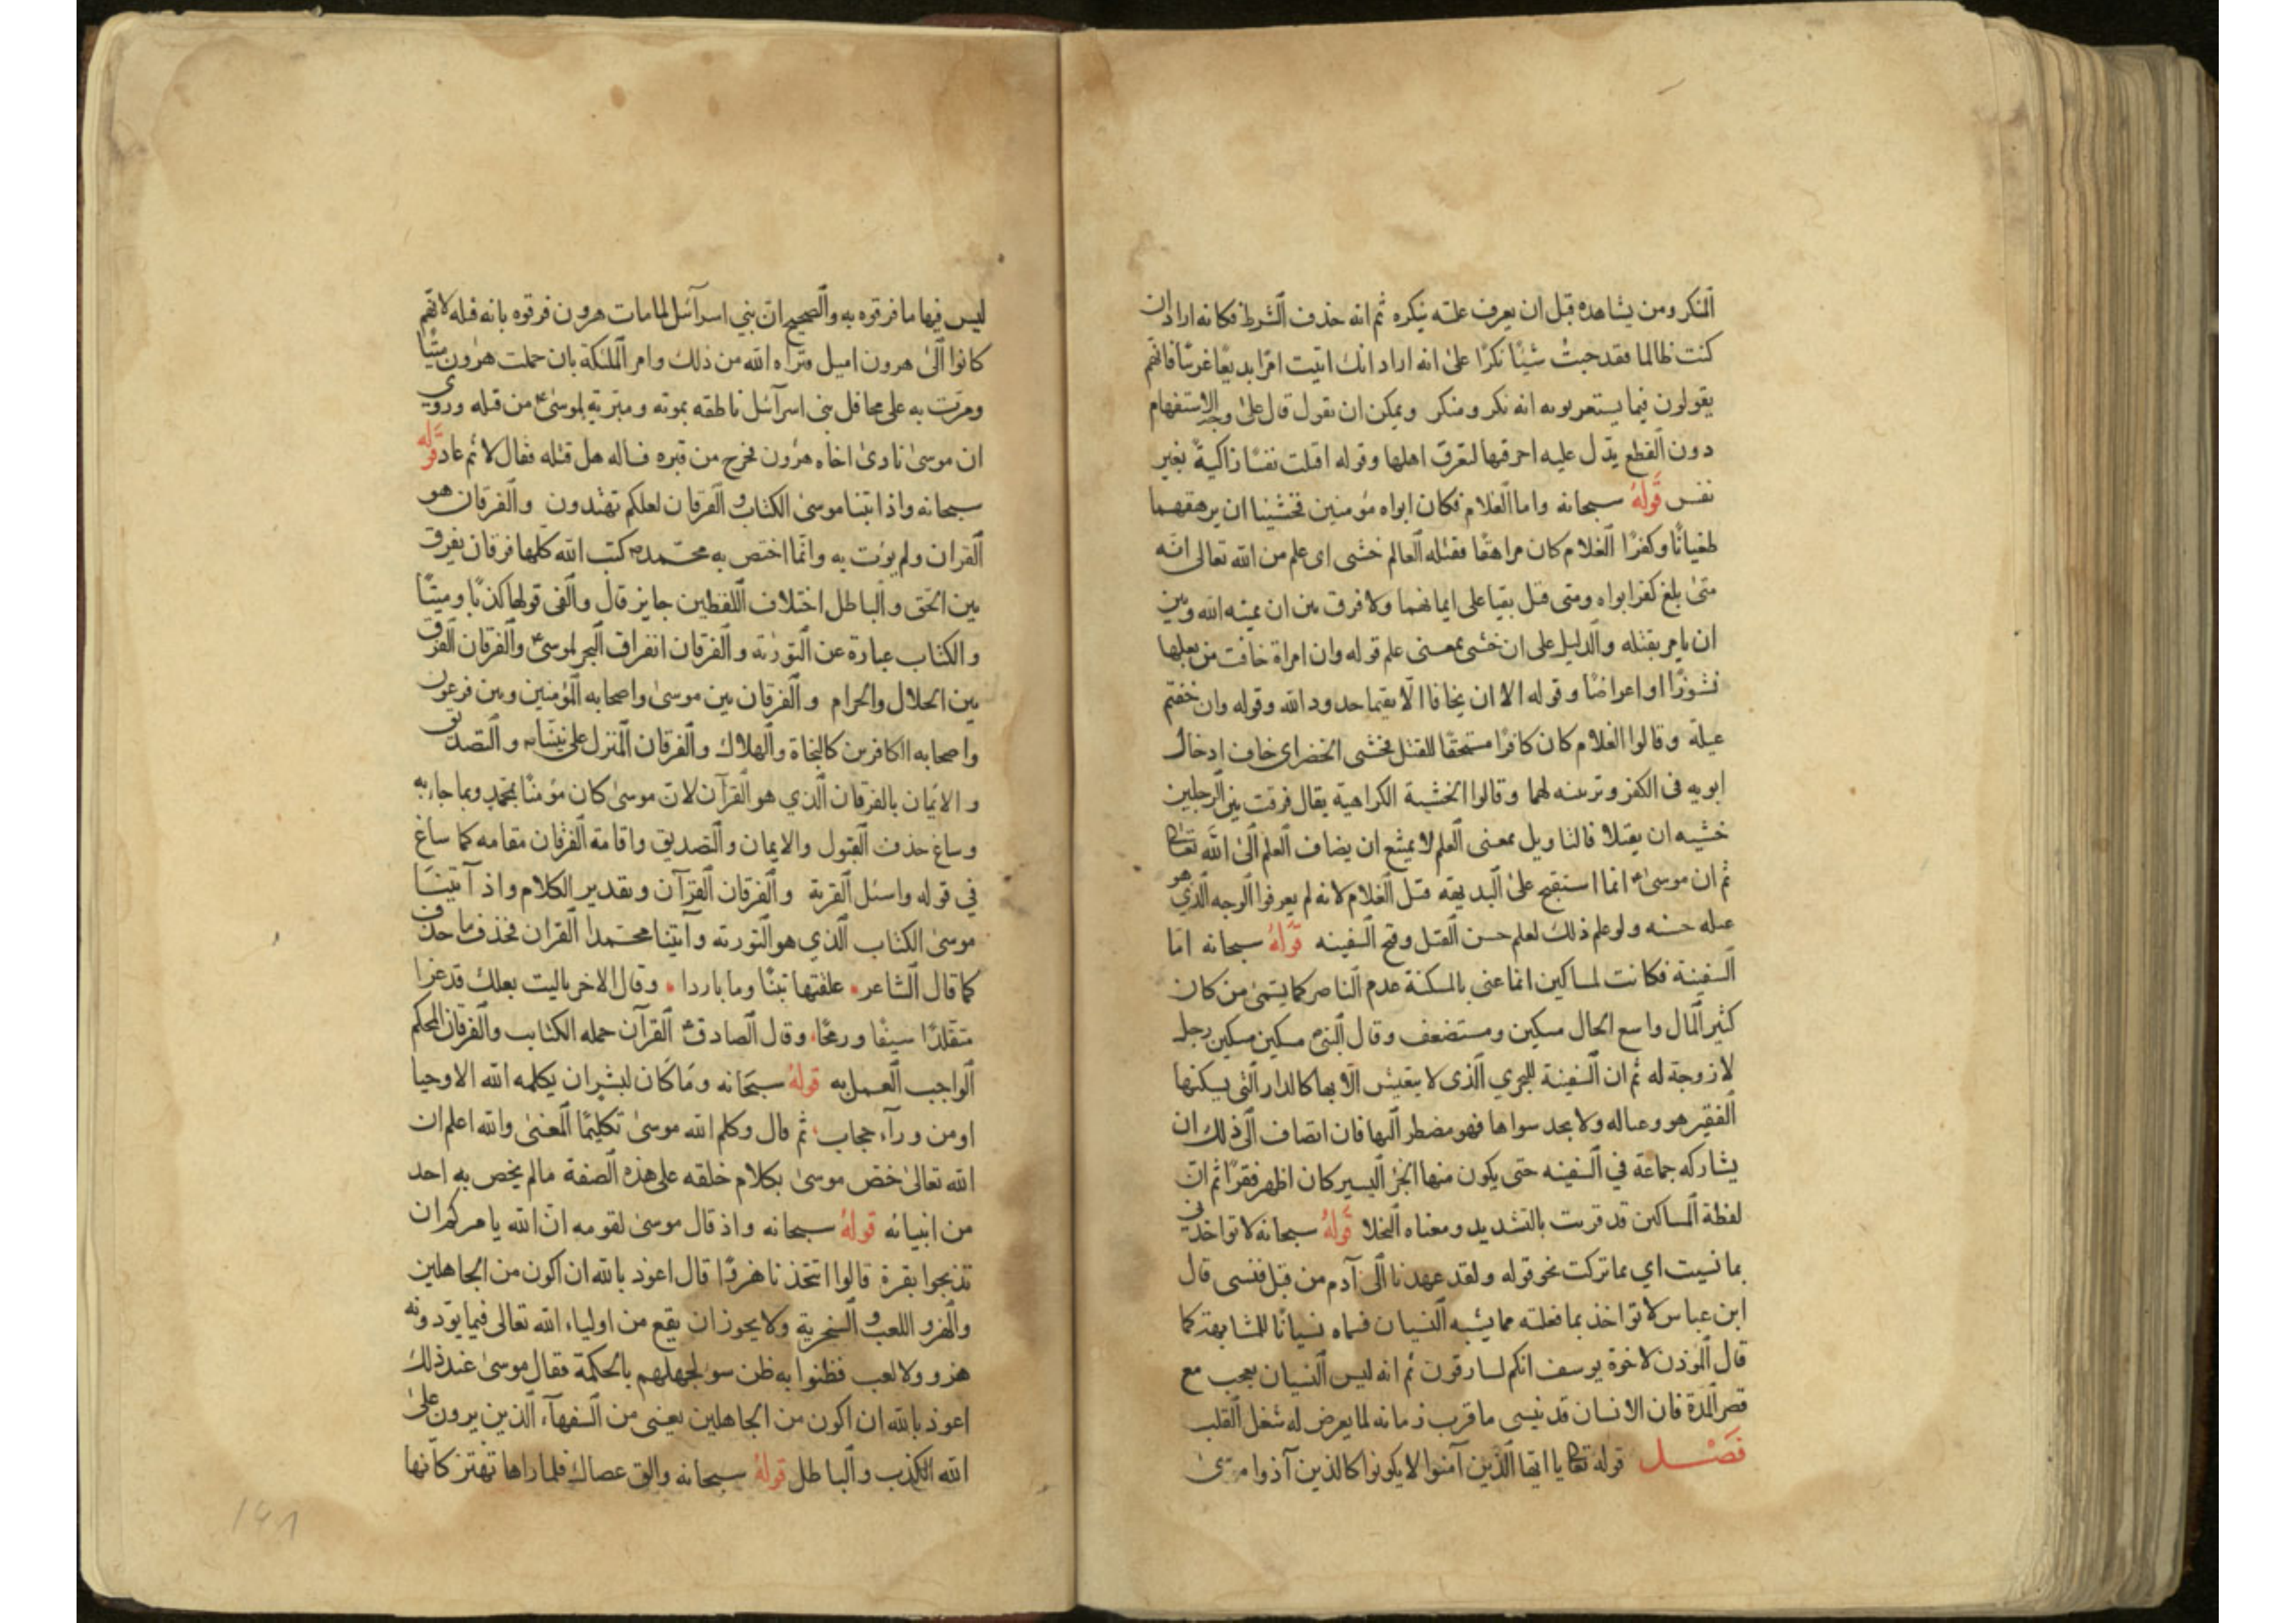 النكر ومن يشاهده قبل ان يعرف علته ينكره ثم انه حذف الشرط فكانه اراد ان
كنت ظالما فقد جئت شيئا نكرا على انه اراد انك اتيت امرا بديعا غريبا فانهم
يقولون فيما يستعربونه انه نكر ومنكر ويمكن ان نقول قال على وجه الاستفهام
دون القطع يدل عليه اخرقتها لتغرق اهلها وقوله اقتلت نفسا زاكية بغير
نفس قوله سبحانه واما الغلام فكان ابواه مؤمنين فخشينا ان يرهقهما
طغيانا وكفرا الغلام كان مراهقا فقتله العالم خشى اى علم من الله تعالى انه
متى بلغ كفر ابواه ومتى قتل بقيا على ايمانهما ولا فرق بين ان يميته الله وبين
ان يامر بقتله والدليل على ان خشى بمعنى علم قوله وان امراة خافت من بعلها
نشوزا او اعراضا وقوله الا ان يخافا الا يقيما حدود الله وقوله وان خفتم
عيلة وقالوا الغلام كان كافرا مستحقا للقتل فخشى الخضر اى خاف ادخال
ابويه فى الكفر وتزيينه لهما وقالوا الخشية الكراهية يقال فرقت بين الرجلين
خشيه ان يقتلا فالتاويل بمعنى العلم لا يمتنع ان يضاف العلم الى الله تعالى
ثم ان موسى انما استقبح على البديهة قتل الغلام لانه لم يعرفوا الوجه الذي هو
عمله حسنه ولو علم ذلك لعلم حسن القتل وقبح السفينه قوله سبحانه اما
السفينة فكانت لمساكين انما عنى بالمسكنة عدم الناصر كما يتمى من كان
كثير المال واسع الحال مسكين ومستضعف وقال النبى مسكين مسكين رجل
لا زوجة له ثم ان السفينة للبحري الذى لا يتعيش الا بها كالدار التى يسكنها
الفقير هو وعياله ولا يجد سواها فهو مضطر اليها فان انضاف الى ذلك ان
يشاركه جماعة في السفينه حتى يكون منها الجزء اليسير كان اظهر فقرا ثم ان
لفظة المساكين قد قريت بالتشديد ومعناه البخلا قوله سبحانه لا تواخذنى
بما نسيت اي بما تركت نحو قوله ولقد عهدنا الى آدم من قبل فنسى قال
ابن عباس لا تواخذ بما فعلته مما يشبه النسيان فسماه نسيانا للمشابهة كما
قال المؤذن لاخوة يوسف انكم لسارقون ثم انه ليس النسيان بعجب مع
قصر المدة فان الانسان قد ينسى ما قرب زمانه لما يعرض له شغل القلب
فصل قوله تعالى يا ايها الذين آمنوا لا يكونوا كالذين آذوا موسى
ليس فيها ما فرقوه به والصحيح ان بني اسرآئيل لما مات هرون فرقوه بانه قتله لانهم
كانوا الى هرون اميل فبراه الله من ذلك وامر الملئكة بان حملت هرون ميتا
ومرت به على محافل بنى اسرآئيل ناطقه بموته ومبرية لموسى من قتله وروي
ان موسى نادى اخاه هرون فخرج من قبره فساله هل قتله فقال لا ثم عاد قوله
سبحانه واذ اتينا موسى الكتاب والفرقان لعلكم تهتدون والفرقان هو
القران ولم يؤت به وانما اختص به محمد كتب الله كلها فرقان يفرق
بين الحق والباطل اختلاف اللفظين جايز قال والفى قولها كذبا ومينا
والكتاب عبارة عن التورية والفرقان انفراق البحر لموسى والفرقان الفرق
بين الحلال والحرام والفرقان بين موسى واصحابه المؤمنين وبين فرعون
واصحابه الكافرين كالنجاة والهلاك والفرقان المنزل على نبينا والتصديق
والايمان بالفرقان الذي هو القرآن لان موسى كان مؤمنا بمحمد وبما جاء به
وساغ حذف القبول والايمان والتصديق واقامة الفرقان مقامه كما ساغ
في قوله واسئل القرية والفرقان القرآن وتقدير الكلام واذ آتينا
موسى الكتاب الذي هو التورية وآتينا محمدا القران فحذف ما حذف
كما قال الشاعر علفتها تبنا وما باردا وقال الاخر ياليت بعلك قد غزا
متقلدا سيفا ورمحا وقال الصادق القرآن جمله الكتاب والفرقان المحكم
الواجب العمل به قوله سبحانه وما كان لبشر ان يكلمه الله الا وحيا
او من ورآء حجاب ثم قال وكلم الله موسى تكليما المعنى والله اعلم ان
الله تعالى خص موسى بكلام خلقه على هذه الصفة مالم يخص به احد
من انبيائه قوله سبحانه واذ قال موسى لقومه ان الله يامركم ان
تذبحوا بقرة قالوا اتتخذنا هزوا قال اعوذ بالله ان اكون من الجاهلين
والهزو اللعب والسخرية ولا يجوز ان يقع من اولياء الله تعالى فيما يؤدونه
هزو ولا لعب فظنوا به ظن سو لجهلهم بالحكمة فقال موسى عند ذلك
اعوذ بالله ان اكون من الجاهلين يعنى من السفهآء الذين يرون على
الله الكذب والباطل قوله سبحانه والق عصاك فلما راها تهتز كانها